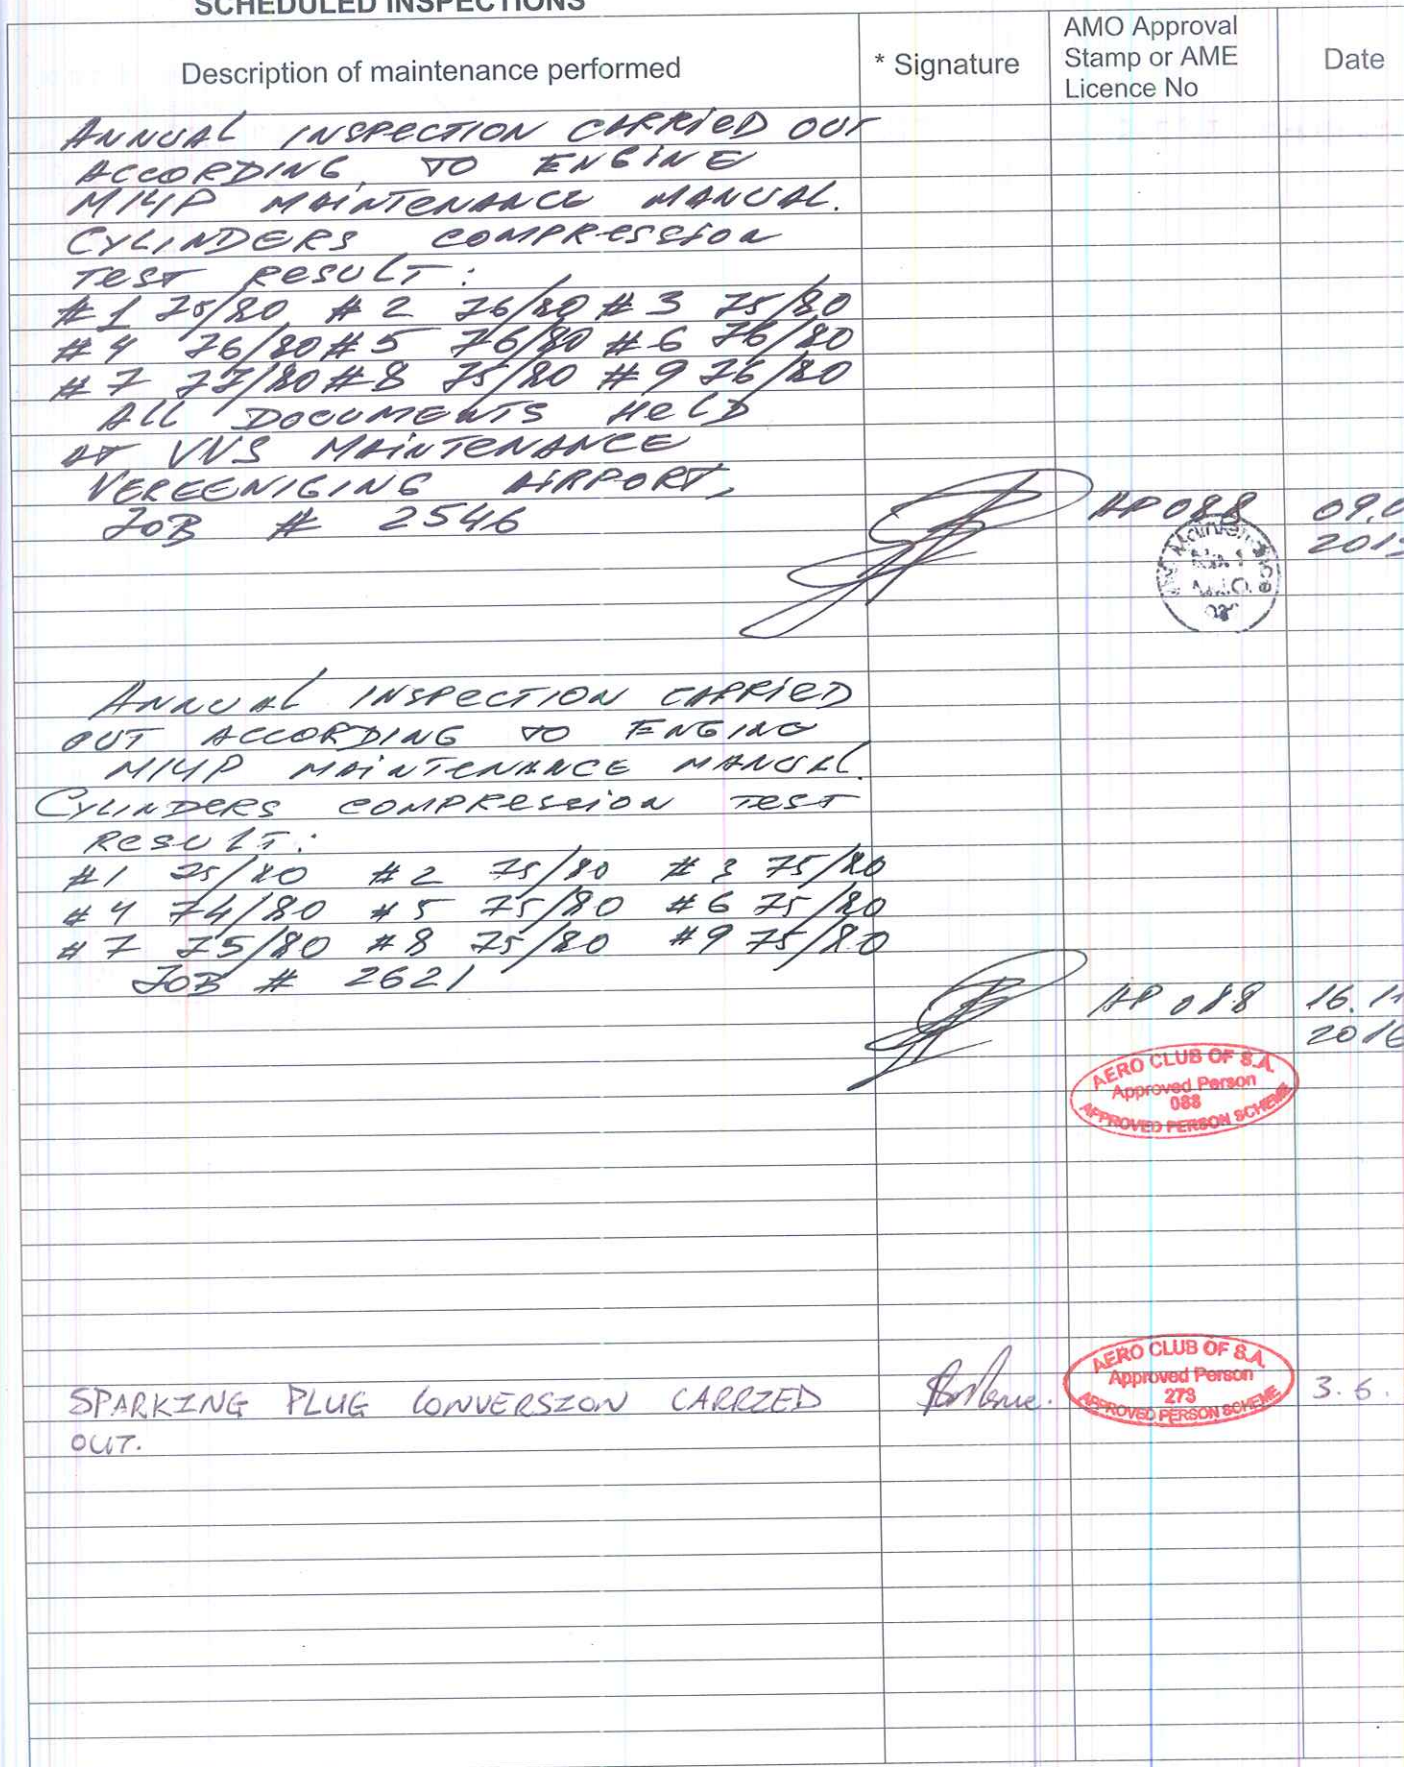 SCHEDULED INSPECTIONS
Description of maintenance performed
* Signature
AMO Approval
Stamp or AME
Licence No
Date
ANNUAL INSPECTION CARRIED OUT
ACCORDING TO ENGINE
M14P MAINTENANCE MANUAL.
CYLINDERS COMPRESSION
TEST RESULT:
#1 75/80 #2 76/80 #3 75/80
#4 76/80 #5 76/80 #6 76/80
#7 77/80 #8 75/80 #9 76/80
ALL DOCUMENTS HELD
AT VNS MAINTENANCE
VEREENIGING AIRPORT,
JOB # 2546
AP 088
09.0
201
Maintenance
ANNUAL INSPECTION CARRIED
OUT ACCORDING TO ENGINE
M14P MAINTENANCE MANUAL.
CYLINDERS COMPRESSION TEST
RESULT:
#1 75/80 #2 75/80 #3 75/80
#4 74/80 #5 75/80 #6 75/80
#7 75/80 #8 75/80 #9 75/80
JOB # 2621
AP 088
16.11
2016
AERO CLUB OF S.A.
Approved Person
088
APPROVED PERSON SCHEME
SPARKING PLUG CONVERSION CARRIED
OUT.
AERO CLUB OF S.A.
Approved Person
273
APPROVED PERSON SCHEME
3.6.